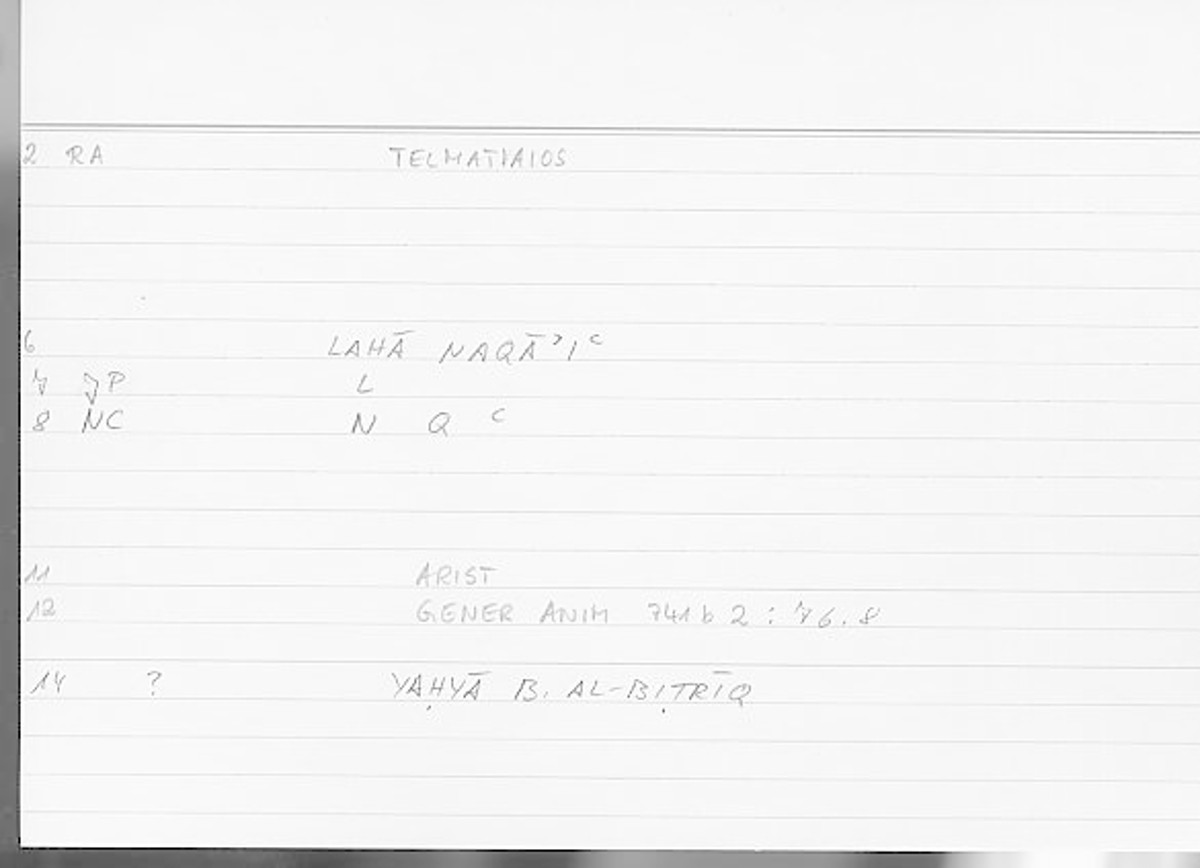 2 RA TELMATIAIOS
6 LAHĀ NAQĀʾIʿ
7 JP L
8 NC N Q ʿ
11 ARIST
12 GENER ANIM 741 b 2 : 76.8
14 ? YAḤYĀ B. AL-BIṬRĪQ